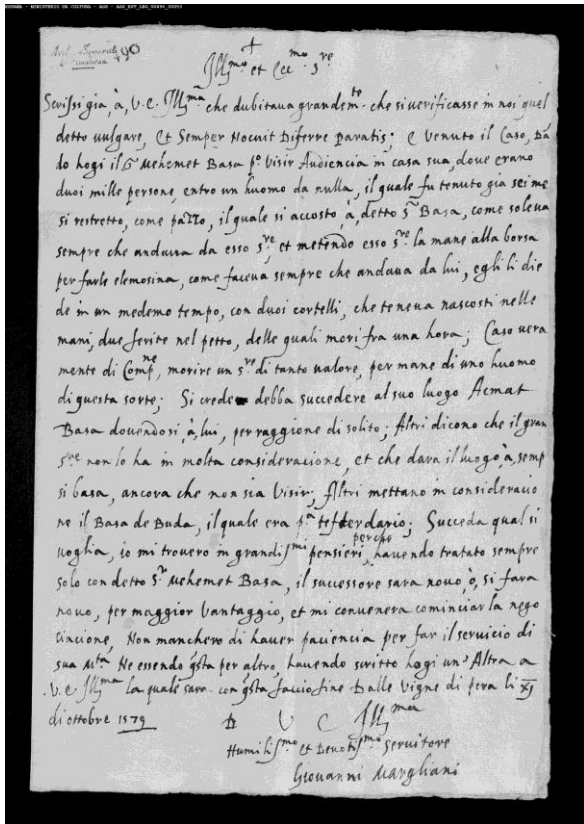 ESPAÑA - MINISTERIO DE CULTURA - AGS - AGS_EST_LEG_00490_00053
490
+
Ill.mo et Ecc.mo S.re
Scrissi già, à, V.E. Ill.ma che dubitava grandem.te che si verificasse in noi quel
detto vulgare, Et Semper Nocuit Diferre Paratis; E Venuto il Caso, Da
do hogi il S. Mehemet Basa p.o Visir Audiencia in casa sua, dove erano
duoi mille persone, entro un huomo da nulla, il quale fu tenuto gia sei me
si restretto, come pazzo, il quale si accosto, à, detto S.r Basa, come soleva
sempre che andava da esso S.re, et metendo esso S.re la mane alla borsa
per farle elemosina, come faceva sempre che andava da lui, egli li die
de in un medemo tempo, con duoi cortelli, che teneva nascosti nelle
mani, due ferite nel petto, delle quali mori fra una hora; Caso vera
mente di Comp.ne, morire un S.re di tanto valore, per mane di uno huomo
di questa sorte; Si crede debba succedere al suo luogo Acmat
Basa dovendosi, à, lui, per raggione di solito; Altri dicono che il gran
S.re non lo ha in molta consideracione, et che dara il luogo, à,
si basa, ancora che non sia Visir; Altri mettano in consideracio
ne il Basa de Buda, il quale era p.a tefterdario; Succeda qual si
voglia, io mi trovero in grandis.mi pensieri, perche havendo tratato sempre
solo con detto S.r Mehemet Basa, il successore sara novo, ò, si fara
novo, per maggior Vantaggio, et mi convenera cominciar la nego
ciacione, Non manchero di haver paciencia per far il servicio di
sua M.ta Ne essendo q.sta per altro, havendo scritto hogi un'Altra a
V.E. Ill.ma la quale sara con q.sta faccio fine Dalle Vigne di pera li XJ
di ottobre 1579
D V E Ill.ma
Humilis.mo et Devotis.mo servitore
Giovanni Margliani